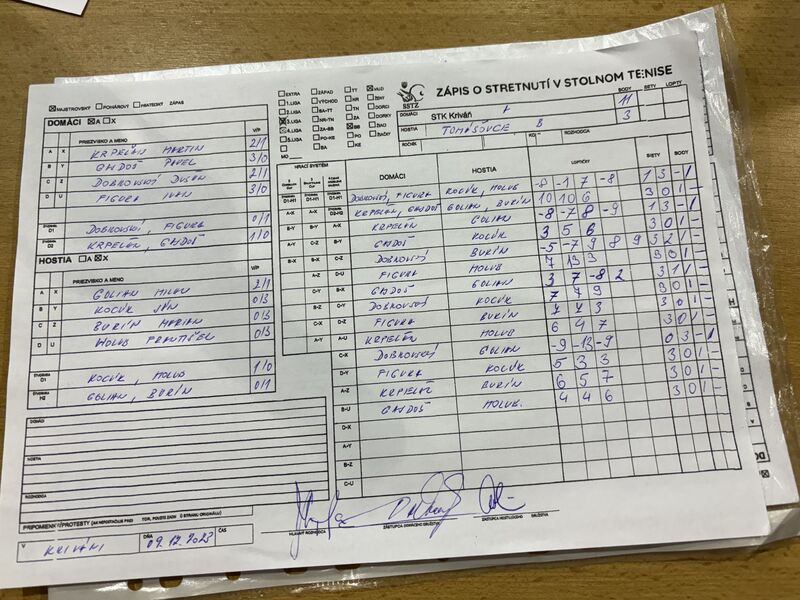 ZÁPIS O STRETNUTÍ V STOLNOM TENISE
SSTZ
MAJSTROVSKÝ POHÁROVÝ PRIATEĽSKÝ ZÁPAS
EXTRA ZÁPAD TT MUŽI
1.LIGA VÝCHOD NR ŽENY
2.LIGA BA-TT TN DORCI
3.LIGA NR-TN ZA DORKY
4.LIGA ZA-BB BB ŽIACI
5.LIGA PO-KE PO ŽIAČKY
BA KE
MO
BODY SETY LOPTY
DOMÁCI STK Kriváň A 11
HOSTIA TOMÁŠOVCE B 3
ROČNÍK KOLO ROZHODCA
DOMÁCI A X
PRIEZVISKO A MENO V/P
A X KRPEĽÁN MARTIN 2/1
B Y GAJDOŠ PAVEL 3/0
C Z DOBROVSKÝ DUŠAN 2/1
D U FIGURA IVAN 3/0
ŠTVORHRA D1 DOBROVSKÝ, FIGURA 0/1
ŠTVORHRA D2 KRPEĽÁN, GAJDOŠ 1/0
HOSTIA A X
PRIEZVISKO A MENO V/P
A X GOLIAN MILAN 2/1
B Y KOCÚR JÁN 0/3
C Z BURÍN MARIAN 0/3
D U HOLUB FRANTIŠEK 0/3
ŠTVORHRA H1 KOCÚR, HOLUB 1/0
ŠTVORHRA H2 GOLIAN, BURÍN 0/1
DOMÁCI
HOSTIA
ROZHODCA
PRIPOMIENKY/PROTESTY (AK NEPOSTAČUJE PREDTLAČ, POUŽITE ZADNÚ STRANU ORIGINÁLU)
V KRIVÁNI DŇA 09.12.2023 ČAS
HRACÍ SYSTÉM DOMÁCI HOSTIA LOPTIČKY SETY BODY
D1-H1 D1-H1 D1-H1 DOBROVSKÝ, FIGURA KOCÚR, HOLUB -8 -1 7 -8 1 3 - 1
A-X A-X D2-H2 KRPEĽÁN, GAJDOŠ GOLIAN, BURÍN 10 10 6 3 0 1 -
B-Y B-Y A-X KRPEĽÁN GOLIAN -8 -7 8 -9 1 3 - 1
A-Y C-Z B-Y GAJDOŠ KOCÚR 3 5 6 3 0 1 -
B-X B-X C-Z DOBROVSKÝ BURÍN -5 -7 9 8 9 3 2 1 -
A-Z D-U FIGURA HOLUB 7 13 3 3 0 1 -
C-Y B-X GAJDOŠ GOLIAN 3 7 -8 2 3 1 1 -
B-Z C-Y DOBROVSKÝ KOCÚR 7 7 9 3 0 1 -
C-X D-Z FIGURA BURÍN 7 7 3 3 0 1 -
A-Y A-U KRPEĽÁN HOLUB 6 4 7 3 0 1 -
C-X DOBROVSKÝ GOLIAN -9 -13 -9 0 3 - 1
D-Y FIGURA KOCÚR 5 3 3 3 0 1 -
A-Z KRPEĽÁN BURÍN 6 5 7 3 0 1 -
B-U GAJDOŠ HOLUB 4 4 6 3 0 1 -
D-X
A-Y
B-Z
C-U
HLAVNÝ ROZHODCA ZÁSTUPCA DOMÁCEHO DRUŽSTVA ZÁSTUPCA HOSŤUJÚCEHO DRUŽSTVA